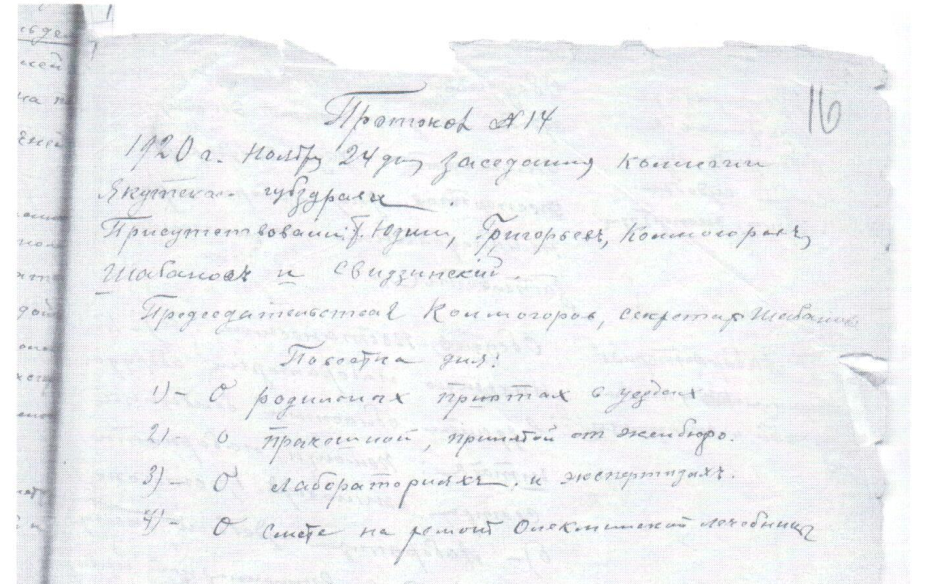 16
Протокол № 14
1920 г. Ноября 24 дня заседания Коллегии
Якутского губздрава.
Присутствовали: Юдин, Григорьевъ, Колмогоровъ,
Шабановъ и Свидзинский.
Председательствовал Колмогоров, секретарь Шабанов.
Повестка дня:
1) - О родильных приютах в уездах
2) О прачешной, принятой от женбюро.
3) - О Лабораторияхъ и экспертизахъ.
4) - О смете на ремонт Олекминской лечебницы